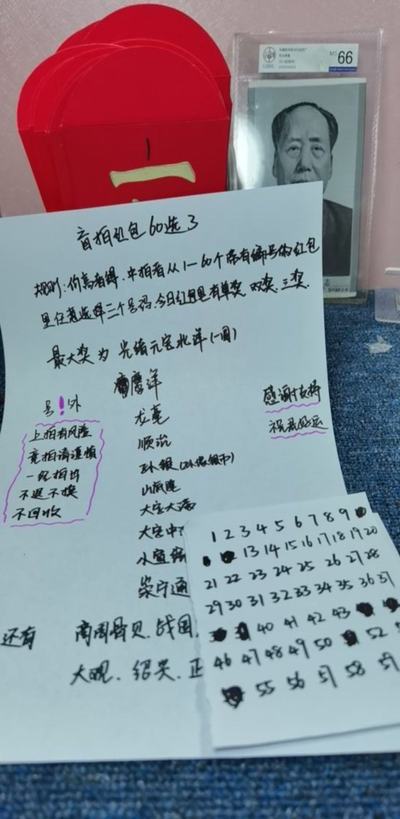 一
66
盲拍红包60选3
规则:价高者得,中拍者从1-60个带有编号的红包
里任意选择三个号码,今日红包里有单奖.双奖.三奖.
最大奖为光绪元宝北洋(一圆)
号!外
上拍有风险
竞拍请谨慎
一经拍出
不退不换
不回收
龙毫
顺治
山版连
大定
大定中
崇宁通
感谢支持
祝君好运
还有 商周骨贝.战国.
大观.绍兴.正
1 2 3 4 5 6 7 8 9
13 14 15 16 17 18 19 20
21 22 23 24 25 26 27 28
29 30 31 32 33 34 35 36 37
40 41 42 43
46 47 48 49 50 52
55 56 57 58 59